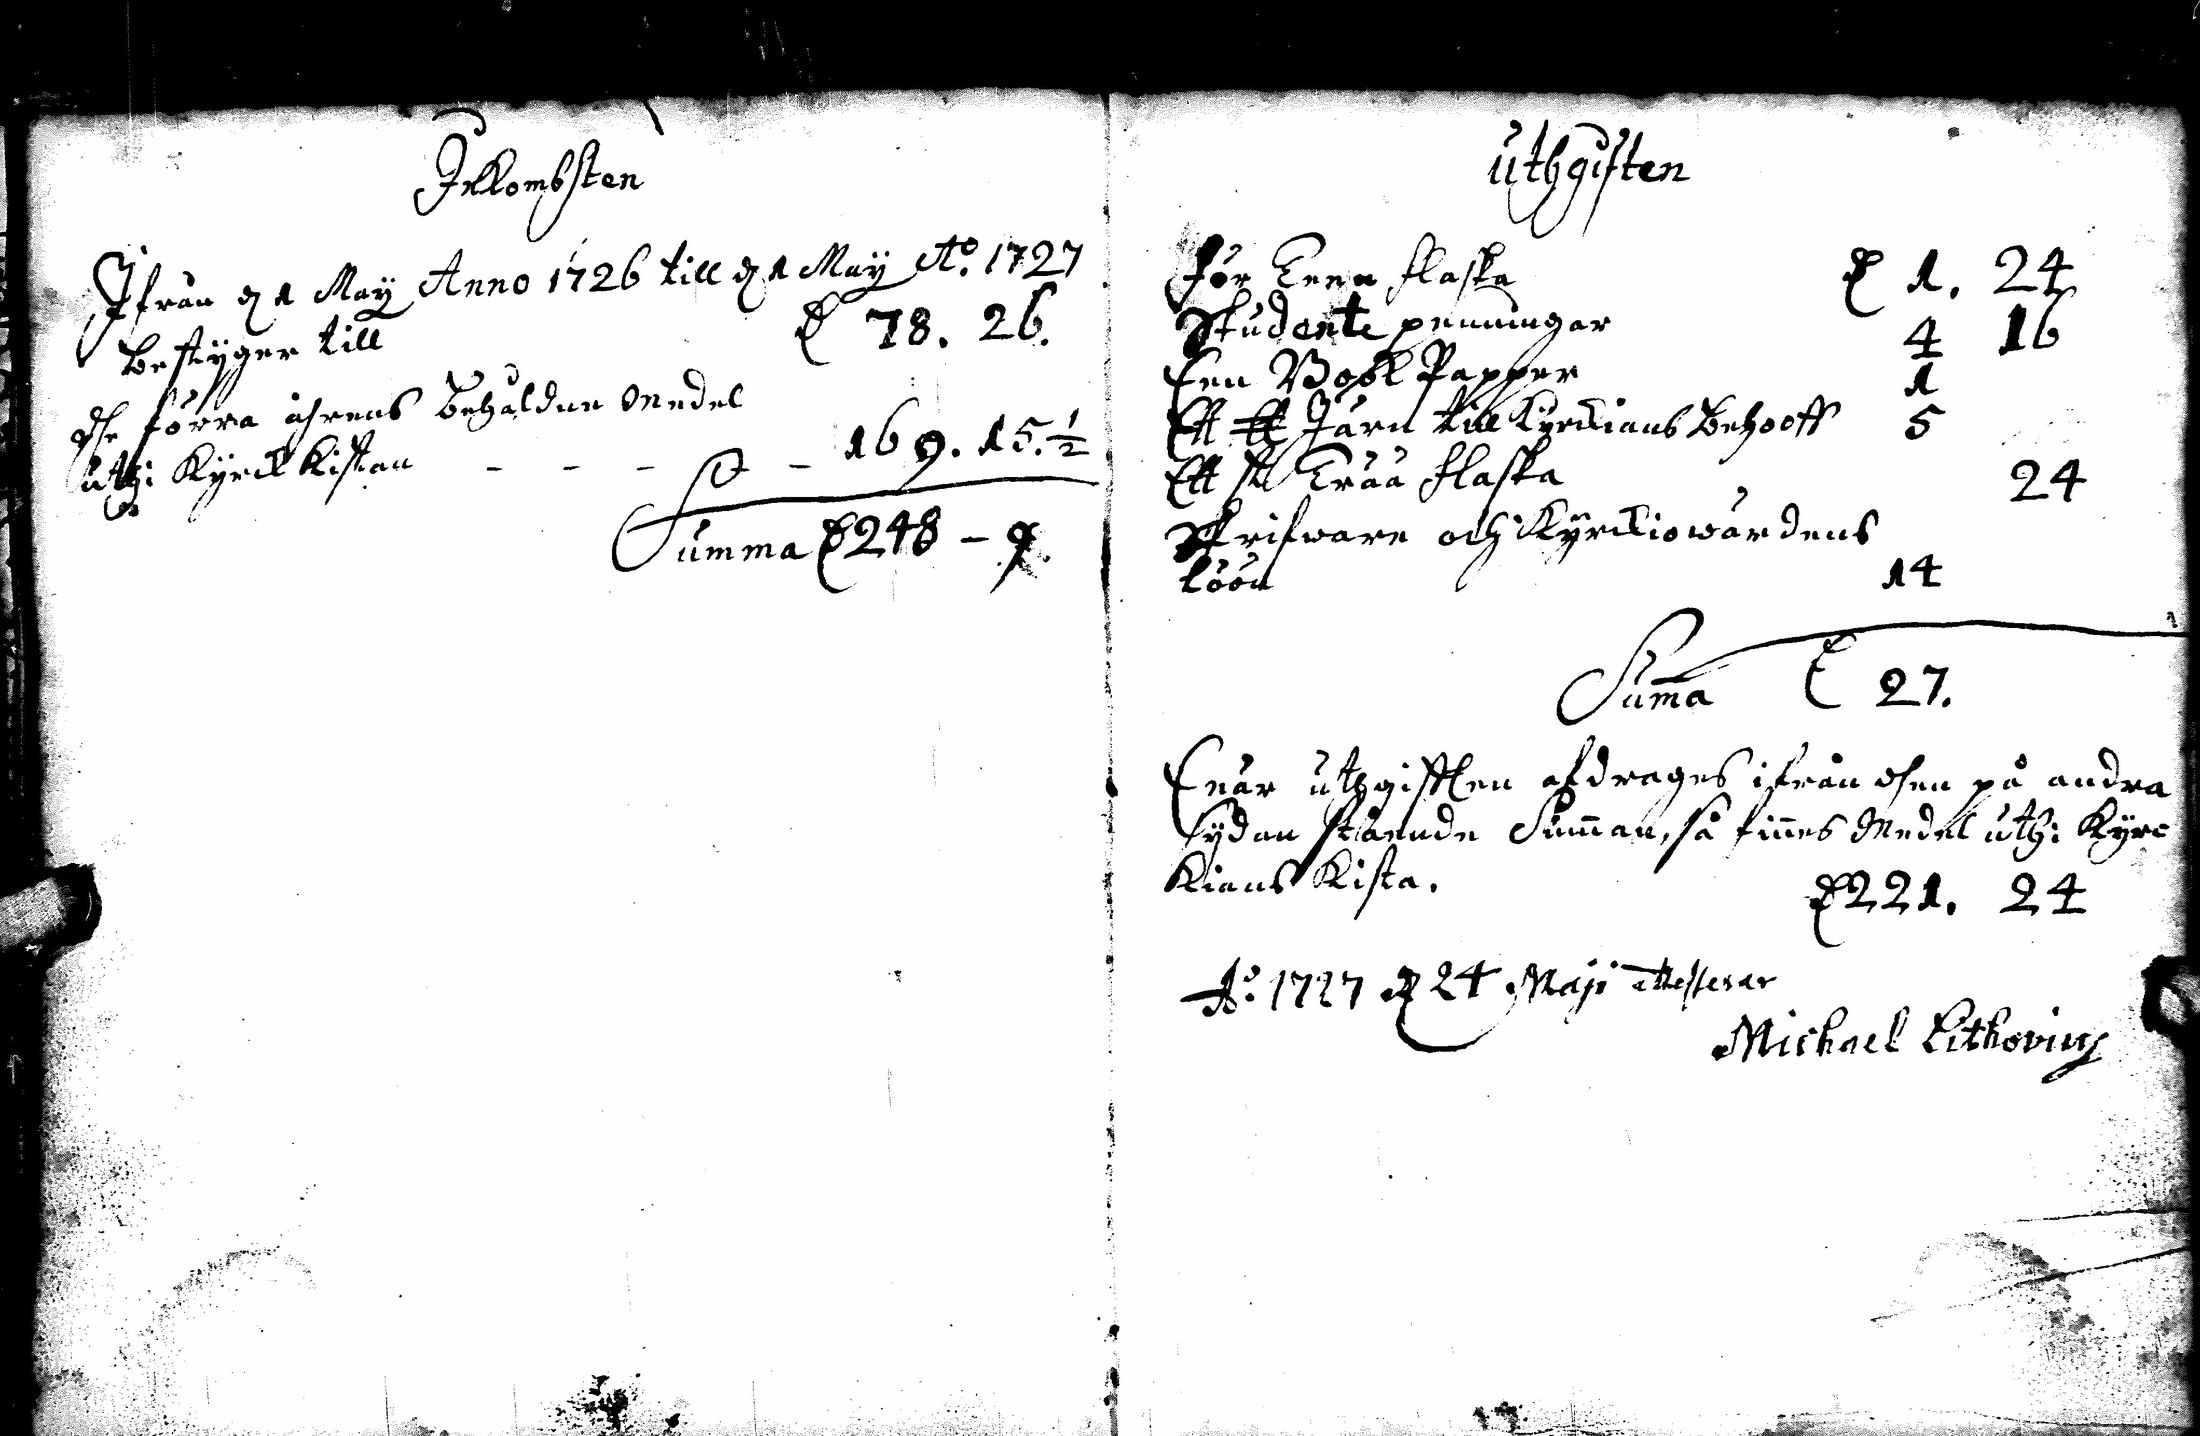 Inkombsten
Ifrån d 1 May Anno 1726 till d 1 May Ao. 1727
Bestyger till 78. 26.
dhe förra åhrens Behåldne Medel
uthi Kyrck Kistan - - - - 169. 15. ½
Summa 248 - 9.
Uthgiften
För Teen flaska 1. 24
Studente penningar 4 16
Een Book Papper 1
Ett Järn till Kyrckians Behooff 5
Ett st Trää flaska 24
Skrifware och Kyrckiowärdens
löön 14
Suma 27.
Enär uthgifften afdrages ifrån dhen på andra
sydan stäende Suman, så finnes Medel uthi Kyrc
Kians Kista.
221. 24
Ao. 1727 d 24 Maji attesterar
Michael Lithovius